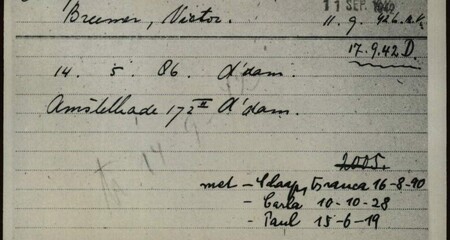 11 SEP. 1940
Breemer, Victor. 11. 9. 42
17.9.42 D.
14. 5. 86. A'dam.
Amstelkade 172 II A'dam.
2005.
met - Schaap, Franca 16-8-90
- Carla 10-10-28
- Paul 15-6-19